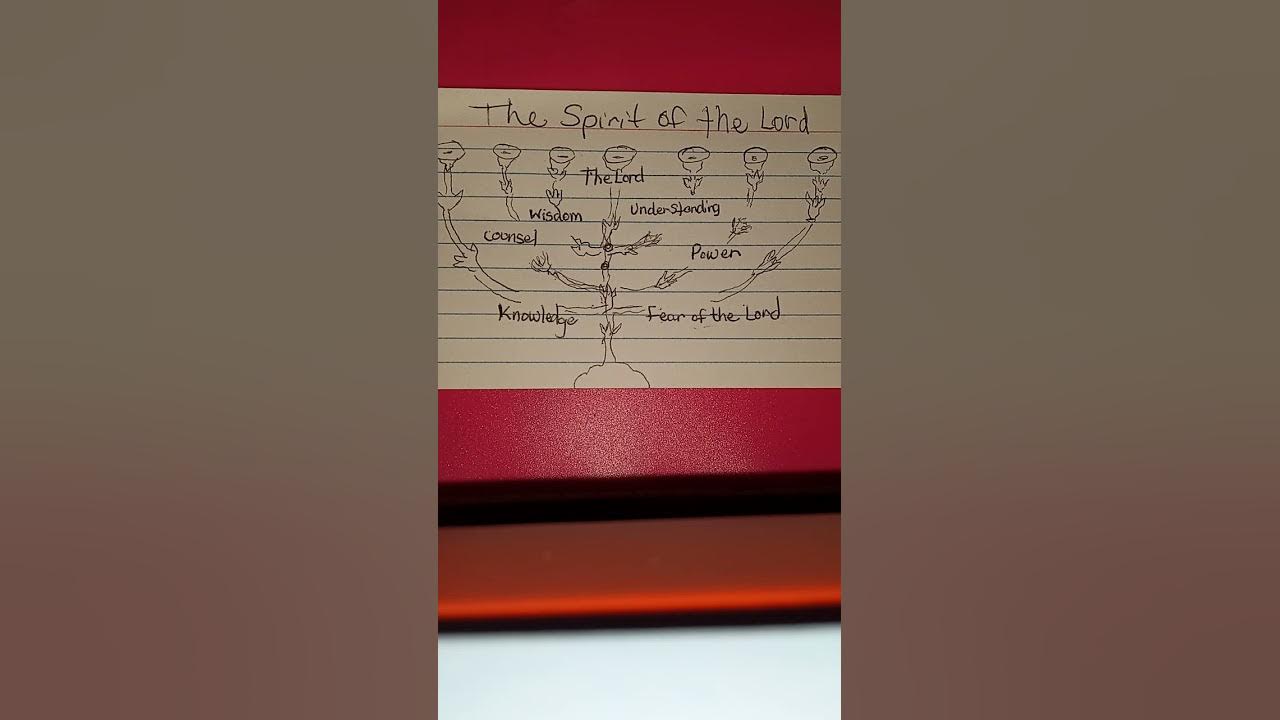 The Spirit of the Lord
The Lord
Wisdom
Understanding
Counsel
Power
Knowledge
Fear of the Lord